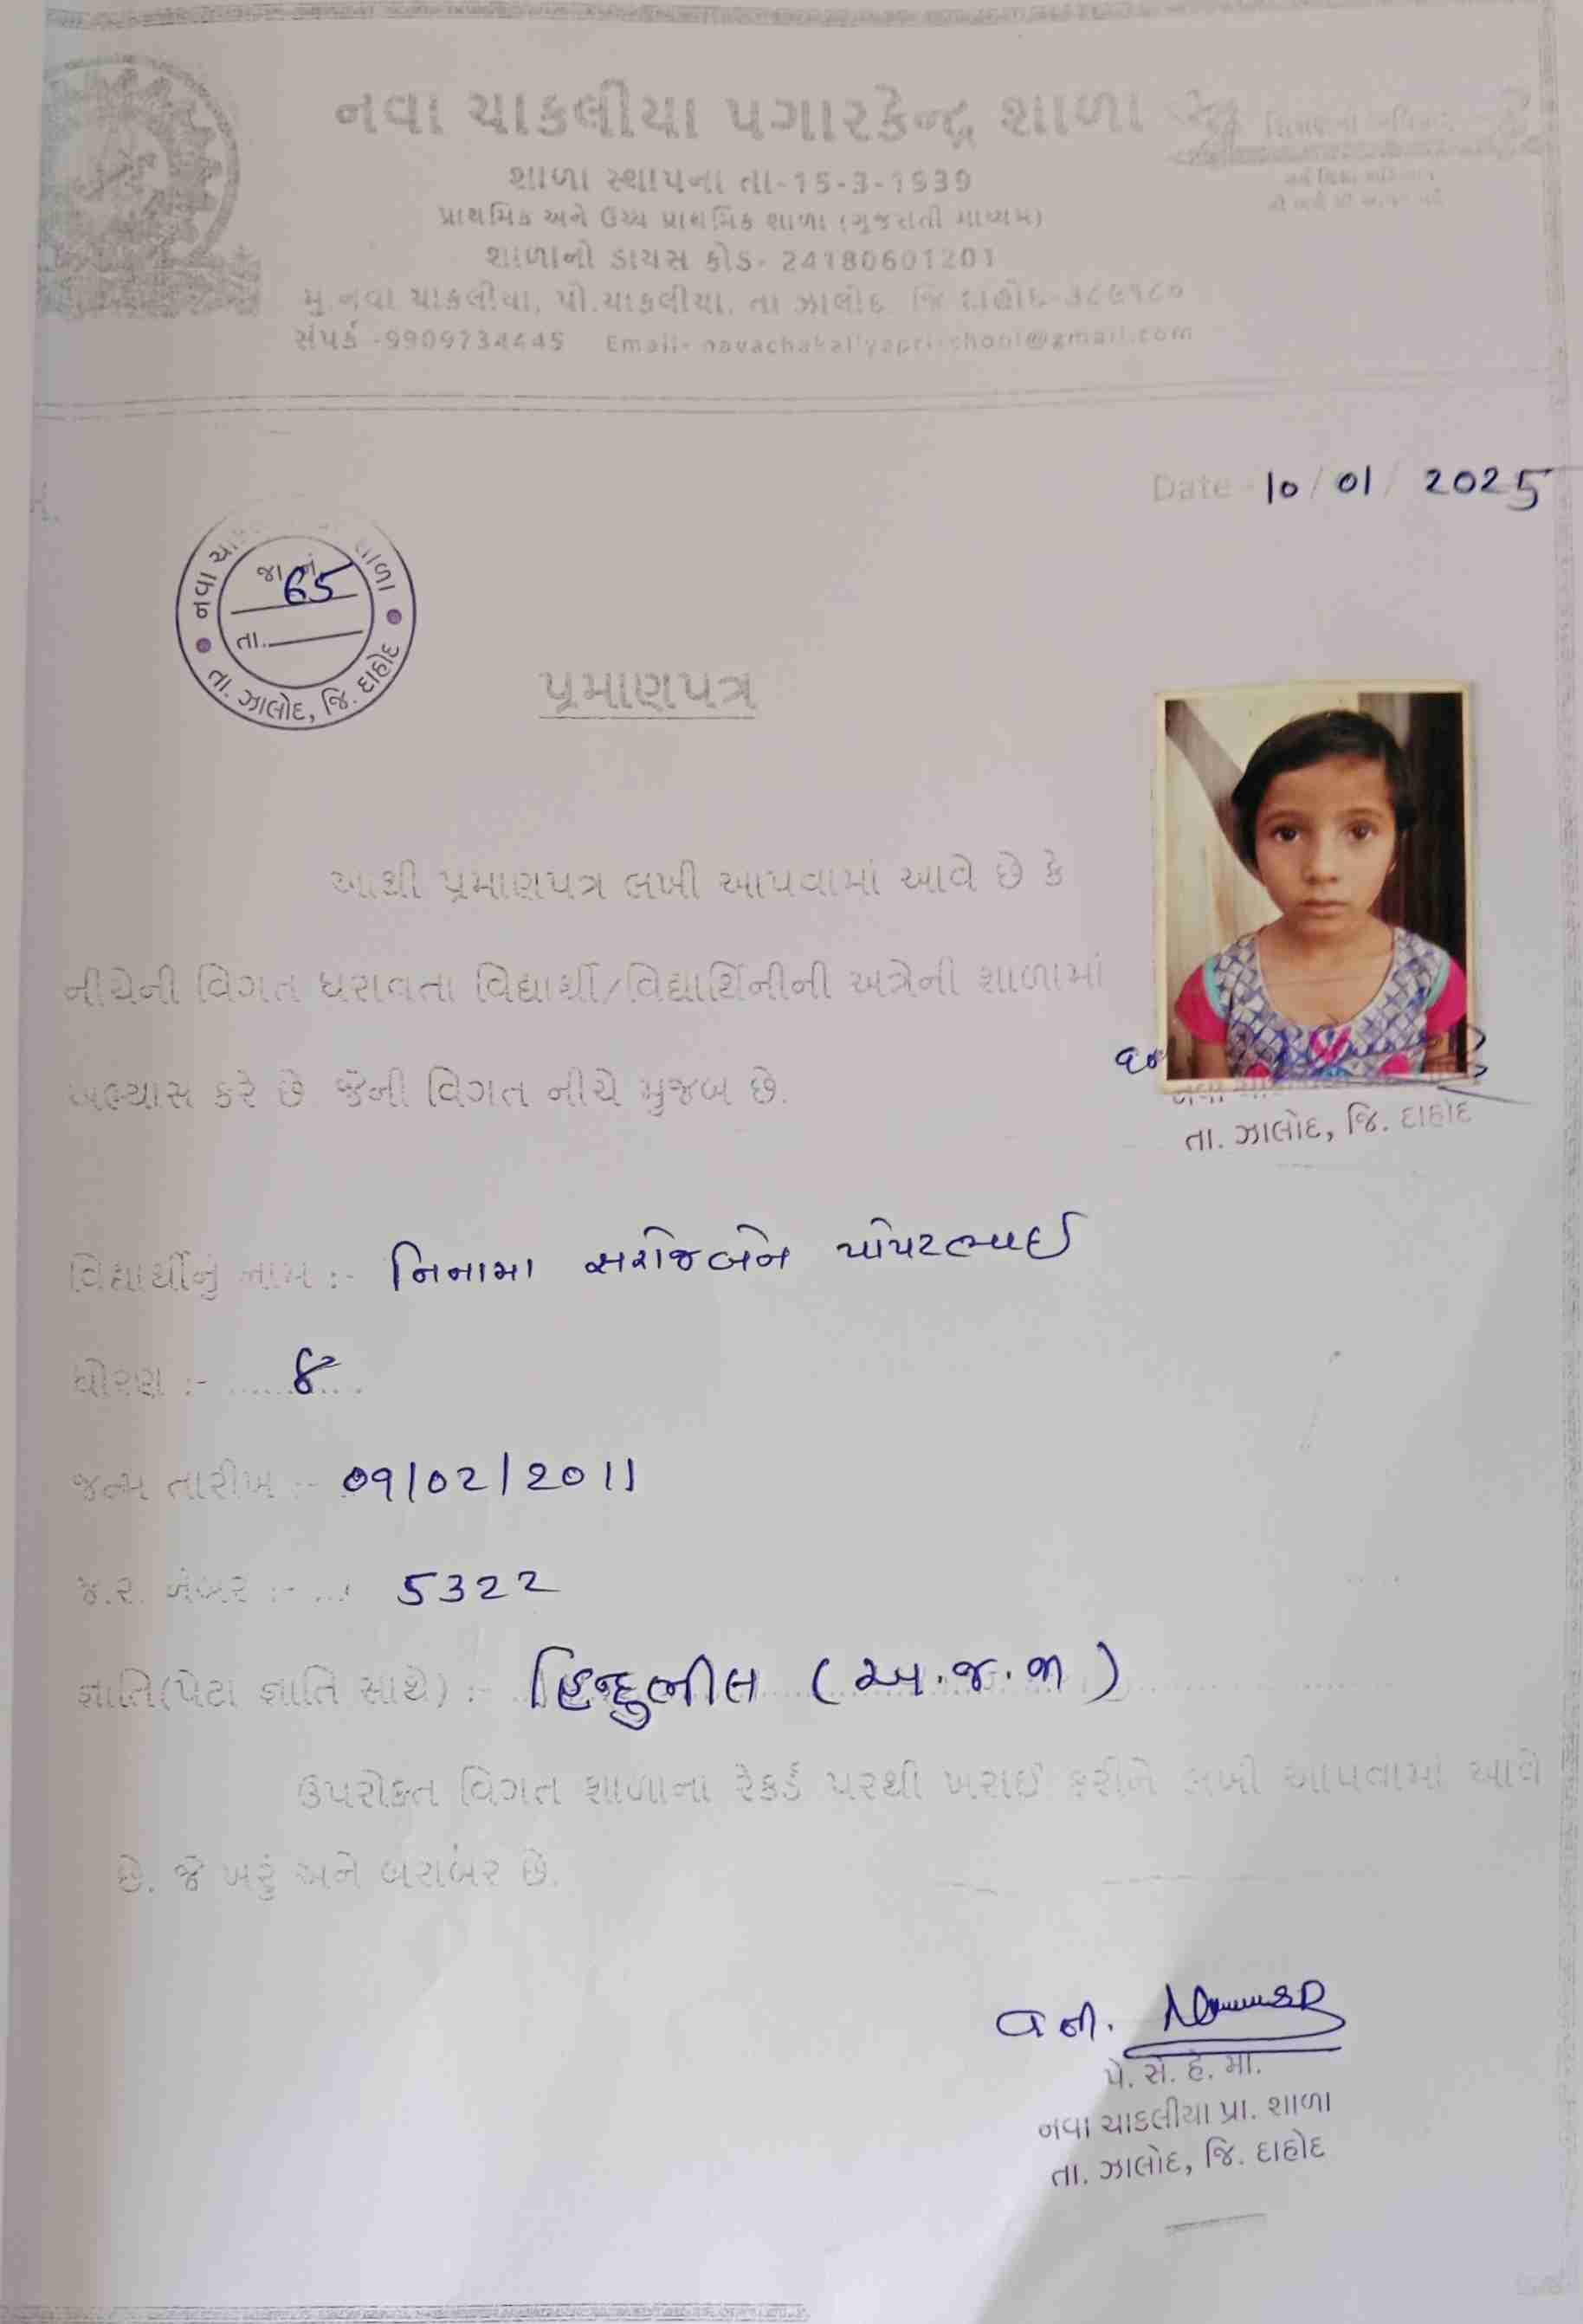 નવા ચાકલીયા પગારકેન્દ્ર શાળા
શાળા સ્થાપના તા-15-3-1939
પ્રાથમિક અને ઉચ્ચ પ્રાથમિક શાળા (ગુજરાતી માધ્યમ)
શાળાનો ડાયસ કોડ- 24180601201
મુ.નવા ચાકલીયા, પો.ચાકલીયા, તા ઝાલોદ જિ દાહોદ-૩૮૯૧૮૦
સંપર્ક -9909734445 Email-
Date - 10/01/2025
નવા શાળા
જા નં 65
તા.
તા. ઝાલોદ, જિ. દાહોદ
પ્રમાણપત્ર
આથી પ્રમાણપત્ર લખી આપવામાં આવે છે કે
નીચેની વિગત ધરાવતા વિદ્યાર્થી/વિદ્યાર્થિનીની અત્રેની શાળામાં
અભ્યાસ કરે છે જેની વિગત નીચે મુજબ છે.
તા. ઝાલોદ, જિ. દાહોદ
વિદ્યાર્થીનું નામ :- નિનામા સરોજબેન પોપટભાઈ
ધોરણ :- ......૪....
જન્મ તારીખ :- 09/02/2011
જ.ર. નંબર :- ... 5322
જ્ઞાતિ(પેટા જ્ઞાતિ સાથે) :- હિન્દુભીલ (અ.જ.જા)
ઉપરોક્ત વિગત શાળાના રેકર્ડ પરથી ખરાઈ કરીને લખી આપવામાં આવે
છે. જે ખરું અને બરાબર છે.
વતી.
પે. સે. હે. મા.
નવા ચાકલીયા પ્રા. શાળા
તા. ઝાલોદ, જિ. દાહોદ